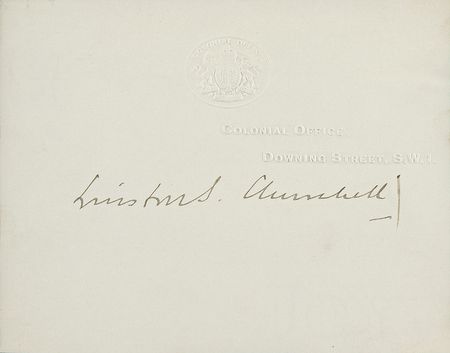 COLONIAL OFFICE,
DOWNING STREET, S.W.1.
Winston S. Churchill